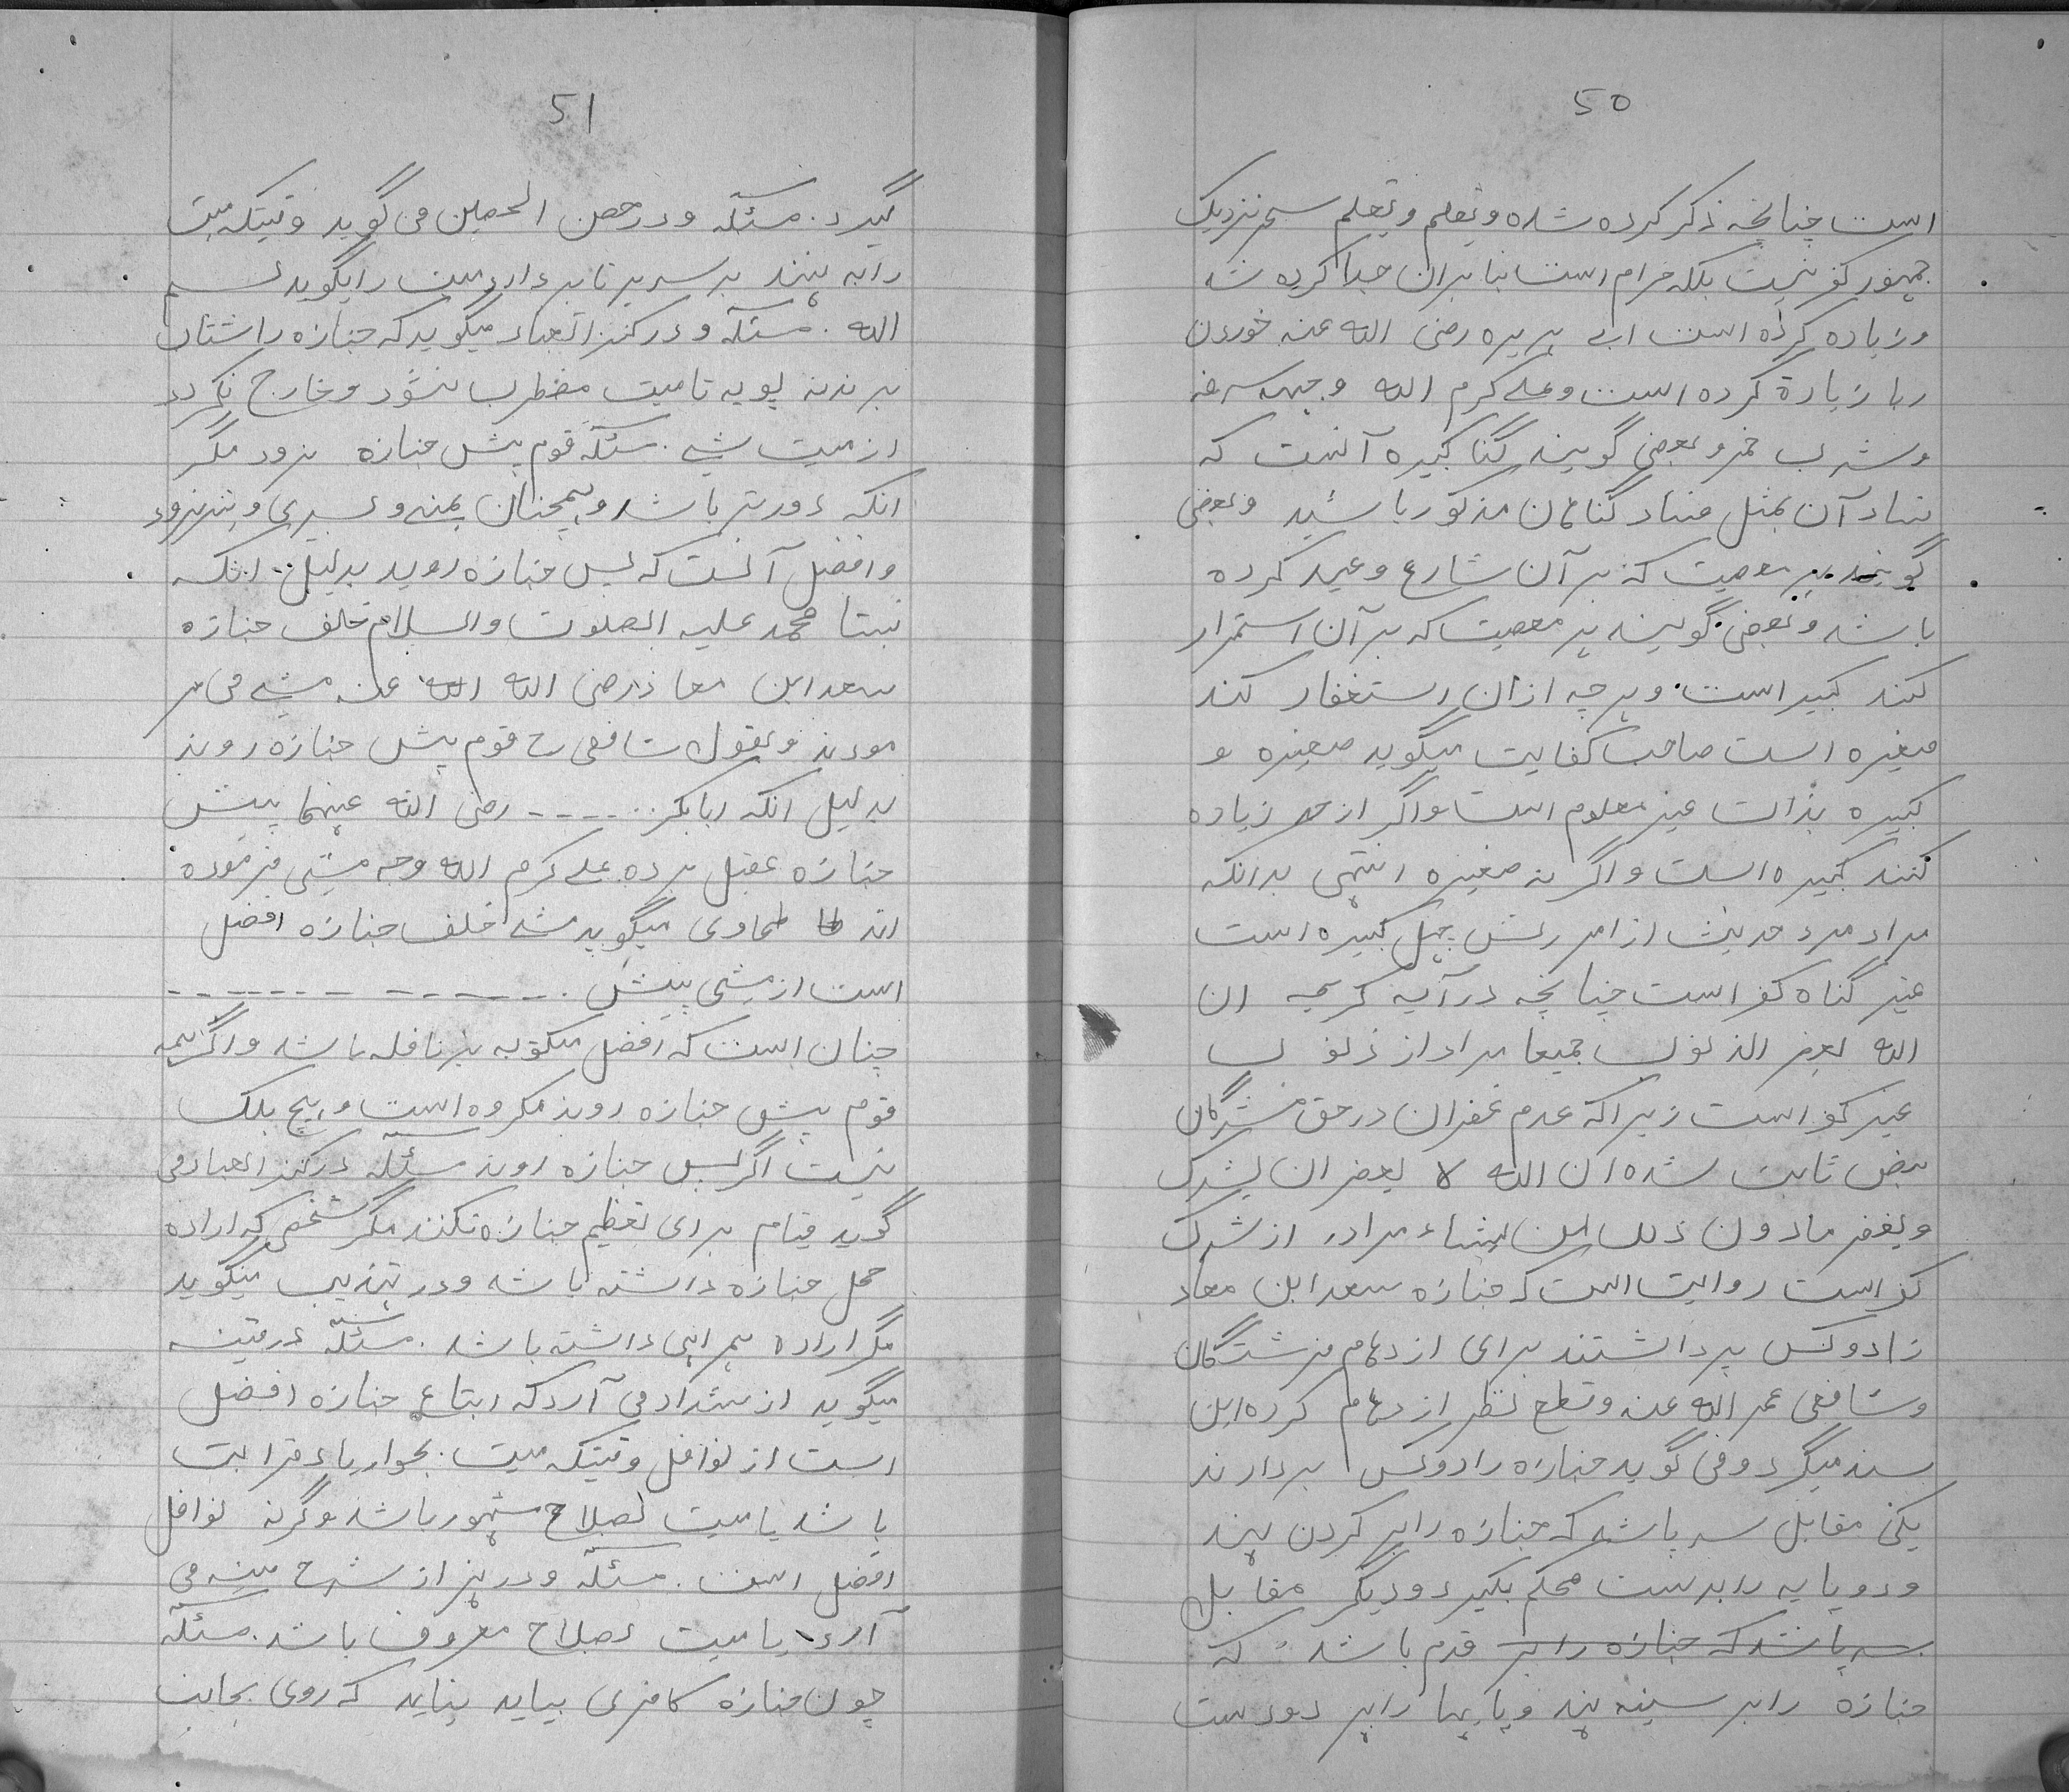 50
است چنانچه ذکر کرده شده و تعلم و تعلم سحر نزدیک
جمهور کفر نیست بلکه حرام است بنا بران جدا کرده شد
و زیاده کرده است ابی هریره رضی الله عنه خوردن
ربا زیادة کرده است و علی کرم الله وجهه سرقه
و شرب خمر و بعضی گویند گناه کبیره آنست که
فساد آن بمثل فساد گناهان مذکور باشید و بعضی
گویند هر معصیت که بر آن شارع وعید کرده
باشد و بعضی گویند هر معصیت که بر آن استمرار
کند کبیر است. و هر چه ازان استغفار کند
صغیره است صاحب کفایت میگوید صغیره و
کبیره بذات غیر معلوم است و اگر از حد زیاده
کنند کبیره است و اگر نه صغیره انتهی بدانکه
مراد مرد حدیث از امر رتش چهل کبیره است
غیر گناه کفر است چنانچه در آیه کریمه ان
الله یغفر الذنوب جمیعا مراد از ذنوب
غیر کفر است زیرا که عدم غفران در حق مشرکان
بنص ثابت شده ان الله لا یغفر ان یشرک
و یغفر مادون ذلک لمن یشاء مراد از شرک
کفر است روایت است که جنازه سعد ابن معاد
را دو کس برداشتند برای ازدهام فرشتگان
و شافعی عمر الله عنه و قطع نظر ازدهام کرده این
سند میگرد و می گوید جنازه را دو کس بردارند
یکی مقابل سر باشد که جنازه را بر گردن نهند
و دو پایه را بدست محکم بگیرد و دیگر مقابل
سر باشد که جنازه را بر قدم باشد که
جنازه را بر سینه نهد و پایها را بر دو دست
51
گیرد. مسئله و در حصن الحصین می گوید وقتیکه میت
را به بینند بر سریر تا بردارد میت را بگوید بسم
الله. مسئله و در کنز العباد میگوید که جنازه را شتاب
برند نه پویه تا میت مضطرب نشود و خارج نگردد
از میت شی. مسئله قوم پیش جنازه نرود مگر
انکه دورتر باشد و همچنان یمنی و یسری و نیز نرود
و افضل آنست که پس جنازه روید بدلیل انکه
نبینا محمد علیه الصلوت والسلام خلف جنازه
سعد ابن معاذ رضی الله الله عنه مشی می فر
مودند و بقول شافعی رح قوم پیش جنازه روند
بدلیل انکه ابابکر ..---- رضی الله عنهما پیش
جنازه عقیل برده علی کرم الله وجه مشی فرموده
اند طا طحاوی میگوید مشی خلف جنازه افضل
است از مشی پیش .- - - - - - - - - - -
چنان است که افضل مکتوبه بر نافله باشد و اگر همه
قوم پیش جنازه روند مکروه است و هیچ بلک
نیست اگر پس جنازه روند مسئله در کنز العباد می
گوید قیام برای تعظیم جنازه نکنند مگر شخصی که اراده
حمل جنازه داشته باشد و در تهذیب میگوید
مگر اراده همراهی داشته باشد. مسئله در قنیه
میگوید از شداد می آرد که اتباع جنازه افضل
است از نوافل وقتیکه میت بجوار یا قرابت
باشد یا میت بصلاح مشهور باشد و گرنه نوافل
افضل است. مسئله و در نهر از شرح منیه می
آرد یا میت بصلاح معروف باشد. مسئله
چون جنازه کافری بیاید بیاید که روی بجانب